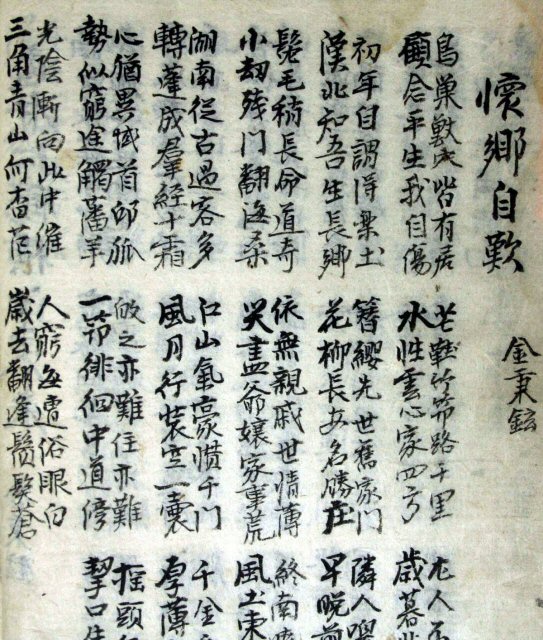 懷鄉自歎
金秉鉉
鳥巢獸穴皆有居
顧念平生我自傷
芒鞋竹笻路千里
水性雲心家四方
尤人不
歲暮悲
初年自謂得樂土
漢北知吾生長鄉
簪纓先世舊家門
花柳長安名勝庄
隣人
早晩前
髮毛稍長命道奇
小劫殘门翻海桑
依無親戚世情薄
哭盡爺孃家事荒
終南
風土東
湖南從古過客多
轉蓬成羣經十霜
江山氣豪千门
風月行裝空一囊
千金
厚薄
心猶異域首邱狐
勢似窮途觸藩羊
之亦難住亦難
一笻徘徊中道傍
搖頭
口
光陰漸向此中催
三角青山何杳茫
人窮每遭俗眼白
歲去翻逢鬢髮蒼